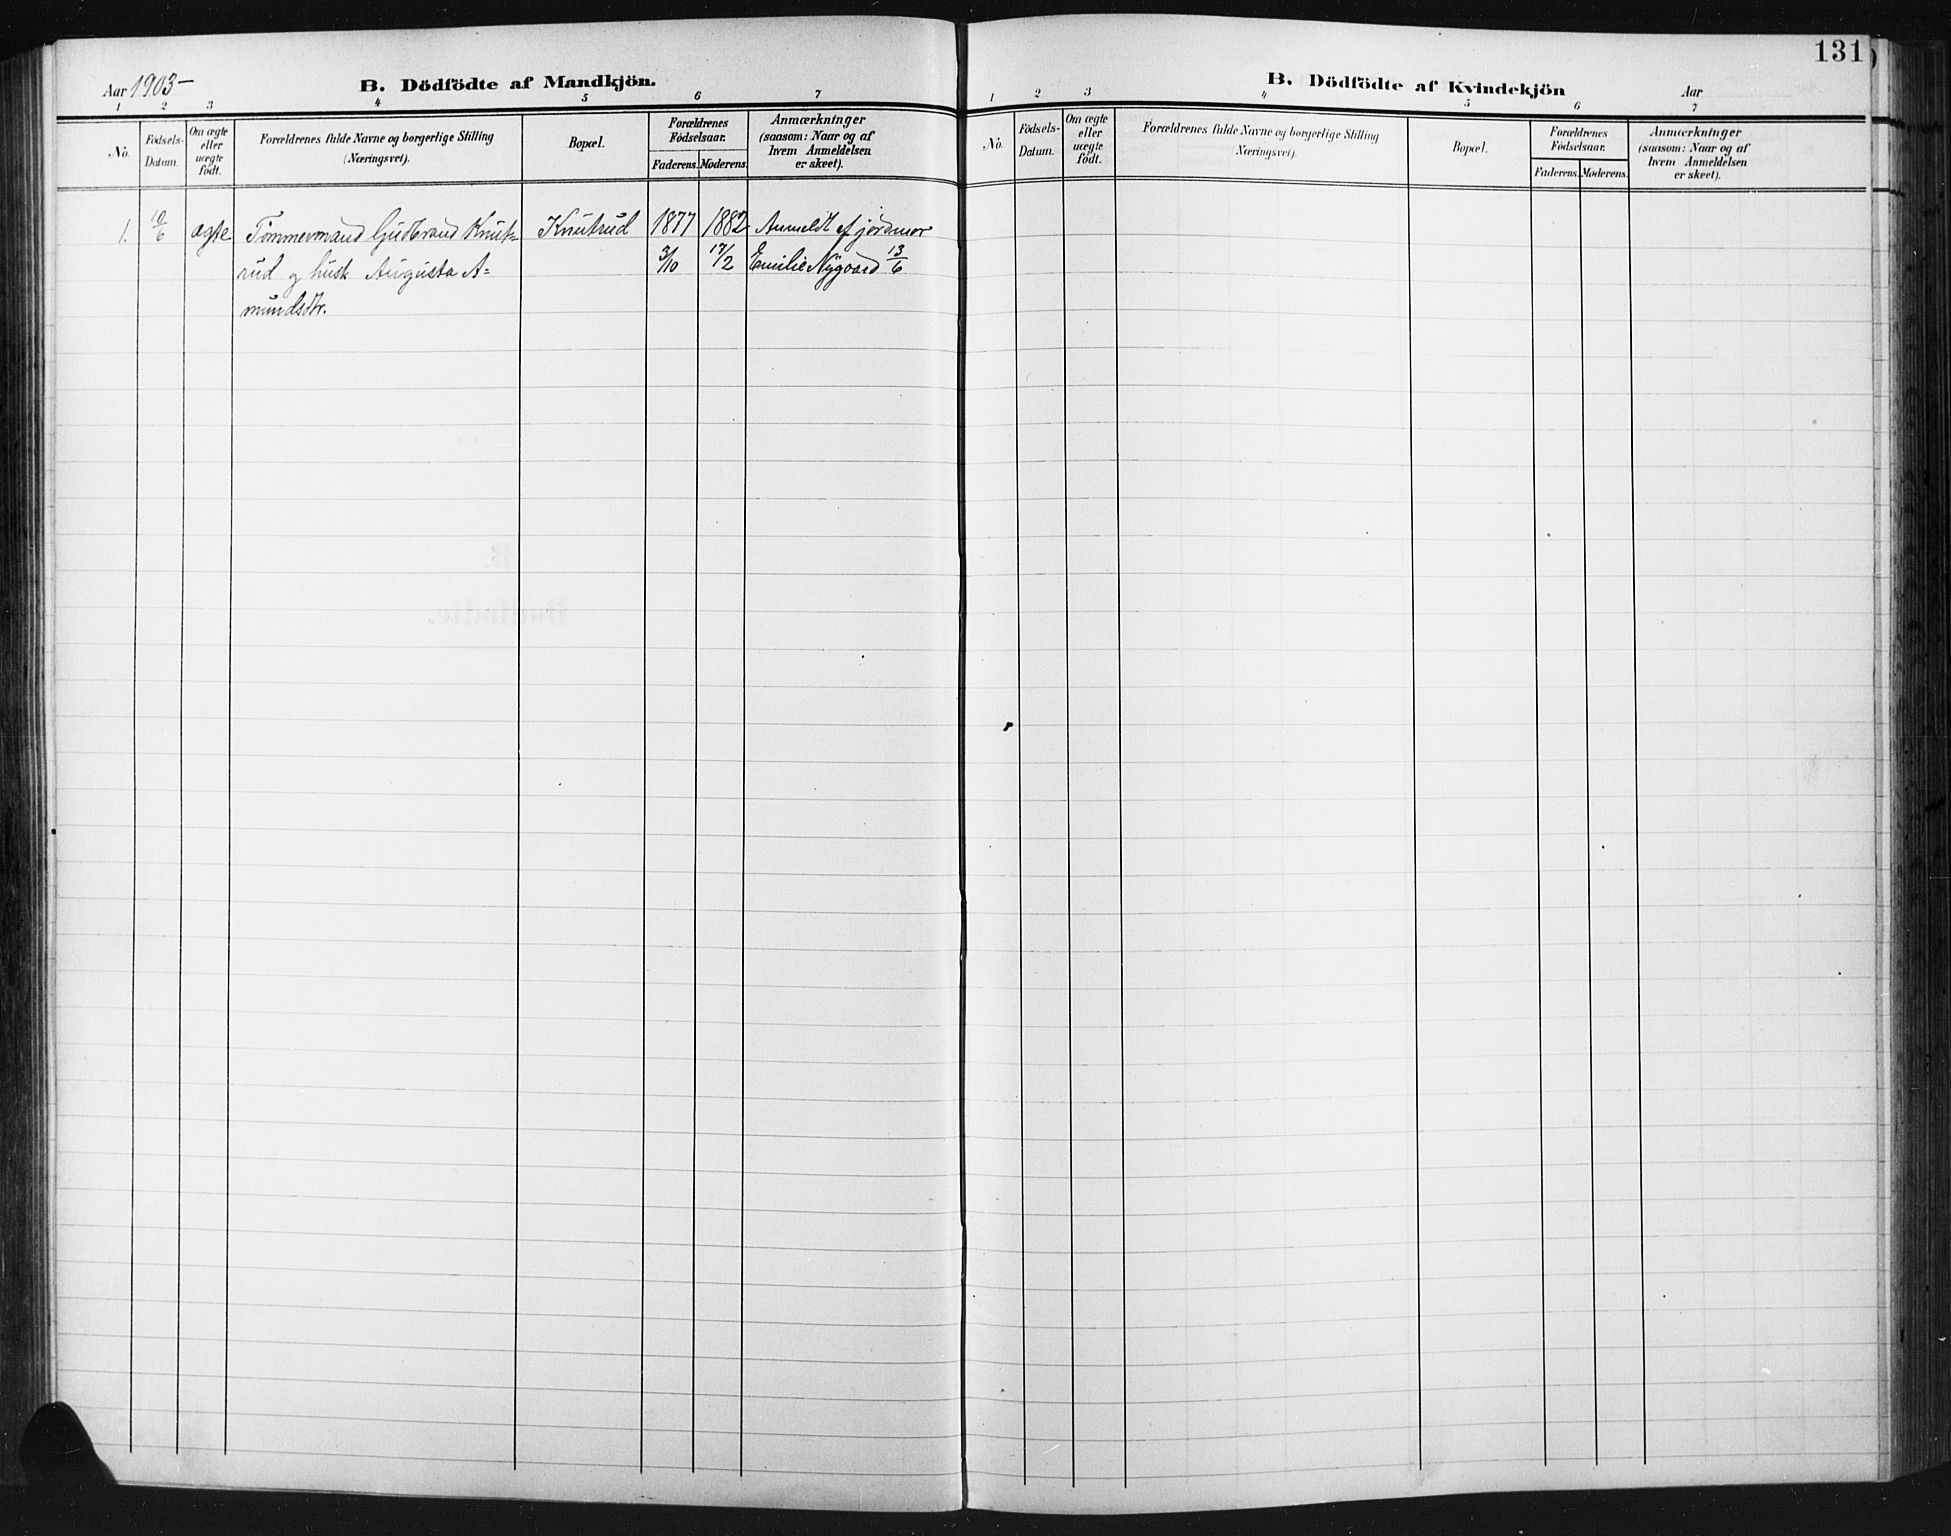 131
Aar 1903- B. Dödfödte af Mandkjön.
1 2 3 4 5 6 7
No. Födsels-Datum. Om ægte eller uægte født. Forældrenes fulde Navne og borgerlige Stilling (Næringsvei). Bopæl. Forældrenes Födselsaar. Faderens. Moderens. Anmærkninger (saasom: Naar og af hvem Anmeldelsen er skeet).
1. 10/6 ægte Tømmermand Gudbrand Knut= Knutrud 1877 1882 Anmeldt af jordmor
rud og hust Augusta A= 3/10 17/2 Emilie Nygaard 13/6
mundsdtr.
B. Dödfödte af Kvindekjön Aar
1 2 3 4 5 6 7
No. Födsels-Datum. Om ægte eller uægte födt. Forældrenes fulde Navne og borgerlige Stilling (Næringsvei). Bopæl. Forældrenes Födselsaar. Faderens. Moderens. Anmærkninger (saasom: Naar og af hvem Anmeldelsen er skeet).